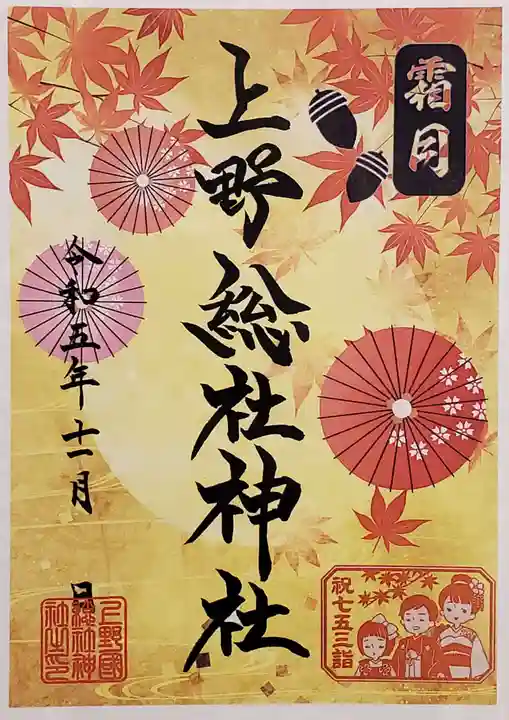 霜月
上野総社神社
令和五年十一月 日
上野國
総社神
社之印
祝七五三詣